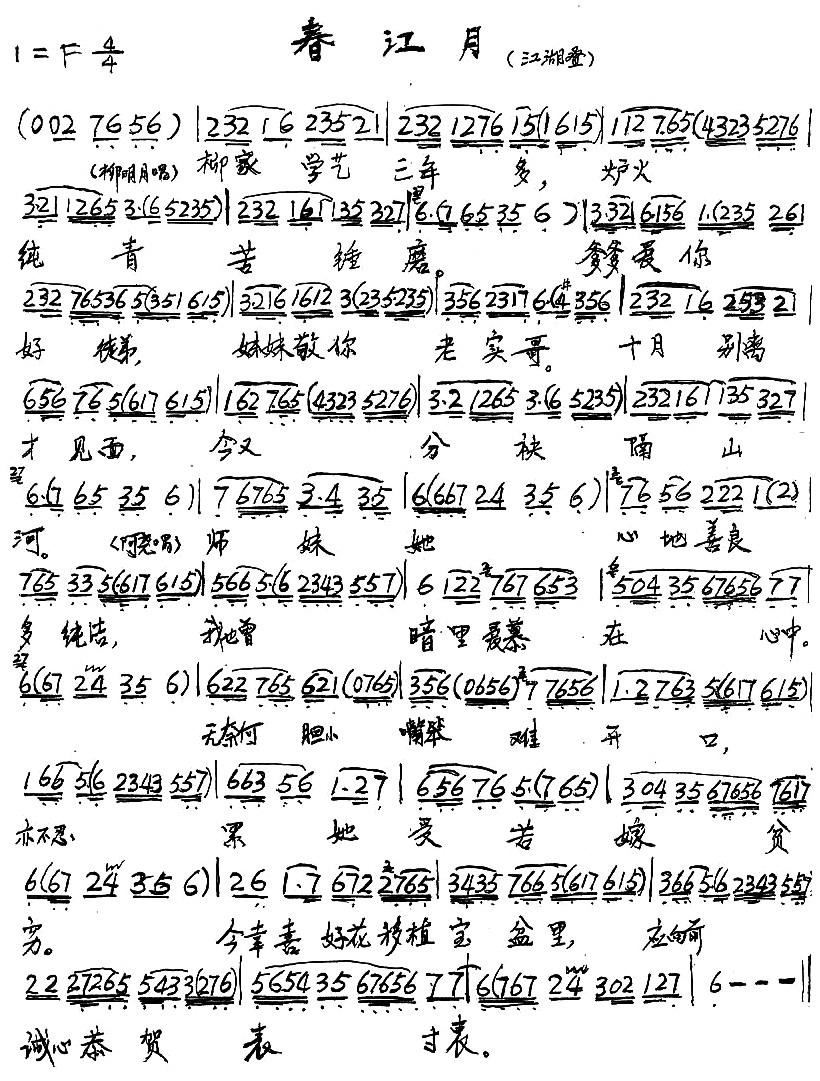 春江月 (江湖叠)
1=F 4/4
(002 7656) | 232 16 23521 | 232 1276 15(1615) | 112 7.65(4323 5276 |
(柳明月唱) 柳家 学艺 三年 多, 炉火
3.21 1265 3.(6 5235) | 232 161 135 327 | 6.(7 65 35 6) | 3.32 6.156 1.(235 261
纯 青 苦 锤 磨。 爹爹爱你
232 765365(351 615) | 3216 1612 3(235235) | 356 2317 6.(4 356 | 232 16 253 21 |
好 徒弟, 妹妹敬你 老实哥。 十月 别离
656 76 5(617 615) | 162 765 (4323 5276) | 3.2 1265 3.(6 5235) | 232161 135 327 |
才见面, 今又 分 袂 隔 山
6.(7 65 35 6) | 7 6765 3.4 35 | 6(667 24 35 6) | 76 56 222 1(2) |
河。 师 妹 她 心地善良
765 33 5(.617 615) | 566 5.(6 2343 557) | 6 122 767 653 | 504 35 67656 77 |
多纯洁, 我也曾 暗里爱慕 在 心中。
6(67 24 35 6) | 622 765 621(0765) | 356(0656) 7 7656 | 1.2 763 5(617 615) |
无奈何 胆小 嘴笨 难 开 口,
166 5.(6 2343 557) | 663 56 1.27 | 656 76 5.(765) | 304 35 67656 7617
亦不忍 累 她 受 苦 嫁 贫
6(67 24 356 6) | 26 1.7 672 2765 | 3435 766 5(617 615) | 366 5.(6 2343 557
穷。 今幸喜 好花移植宝 盆里, 应向前
22 27265 5433(276) | 5654 35 67656 77 | 6(767 24 302 127 | 6 - - - ||
诚心恭贺 表 寸衷。